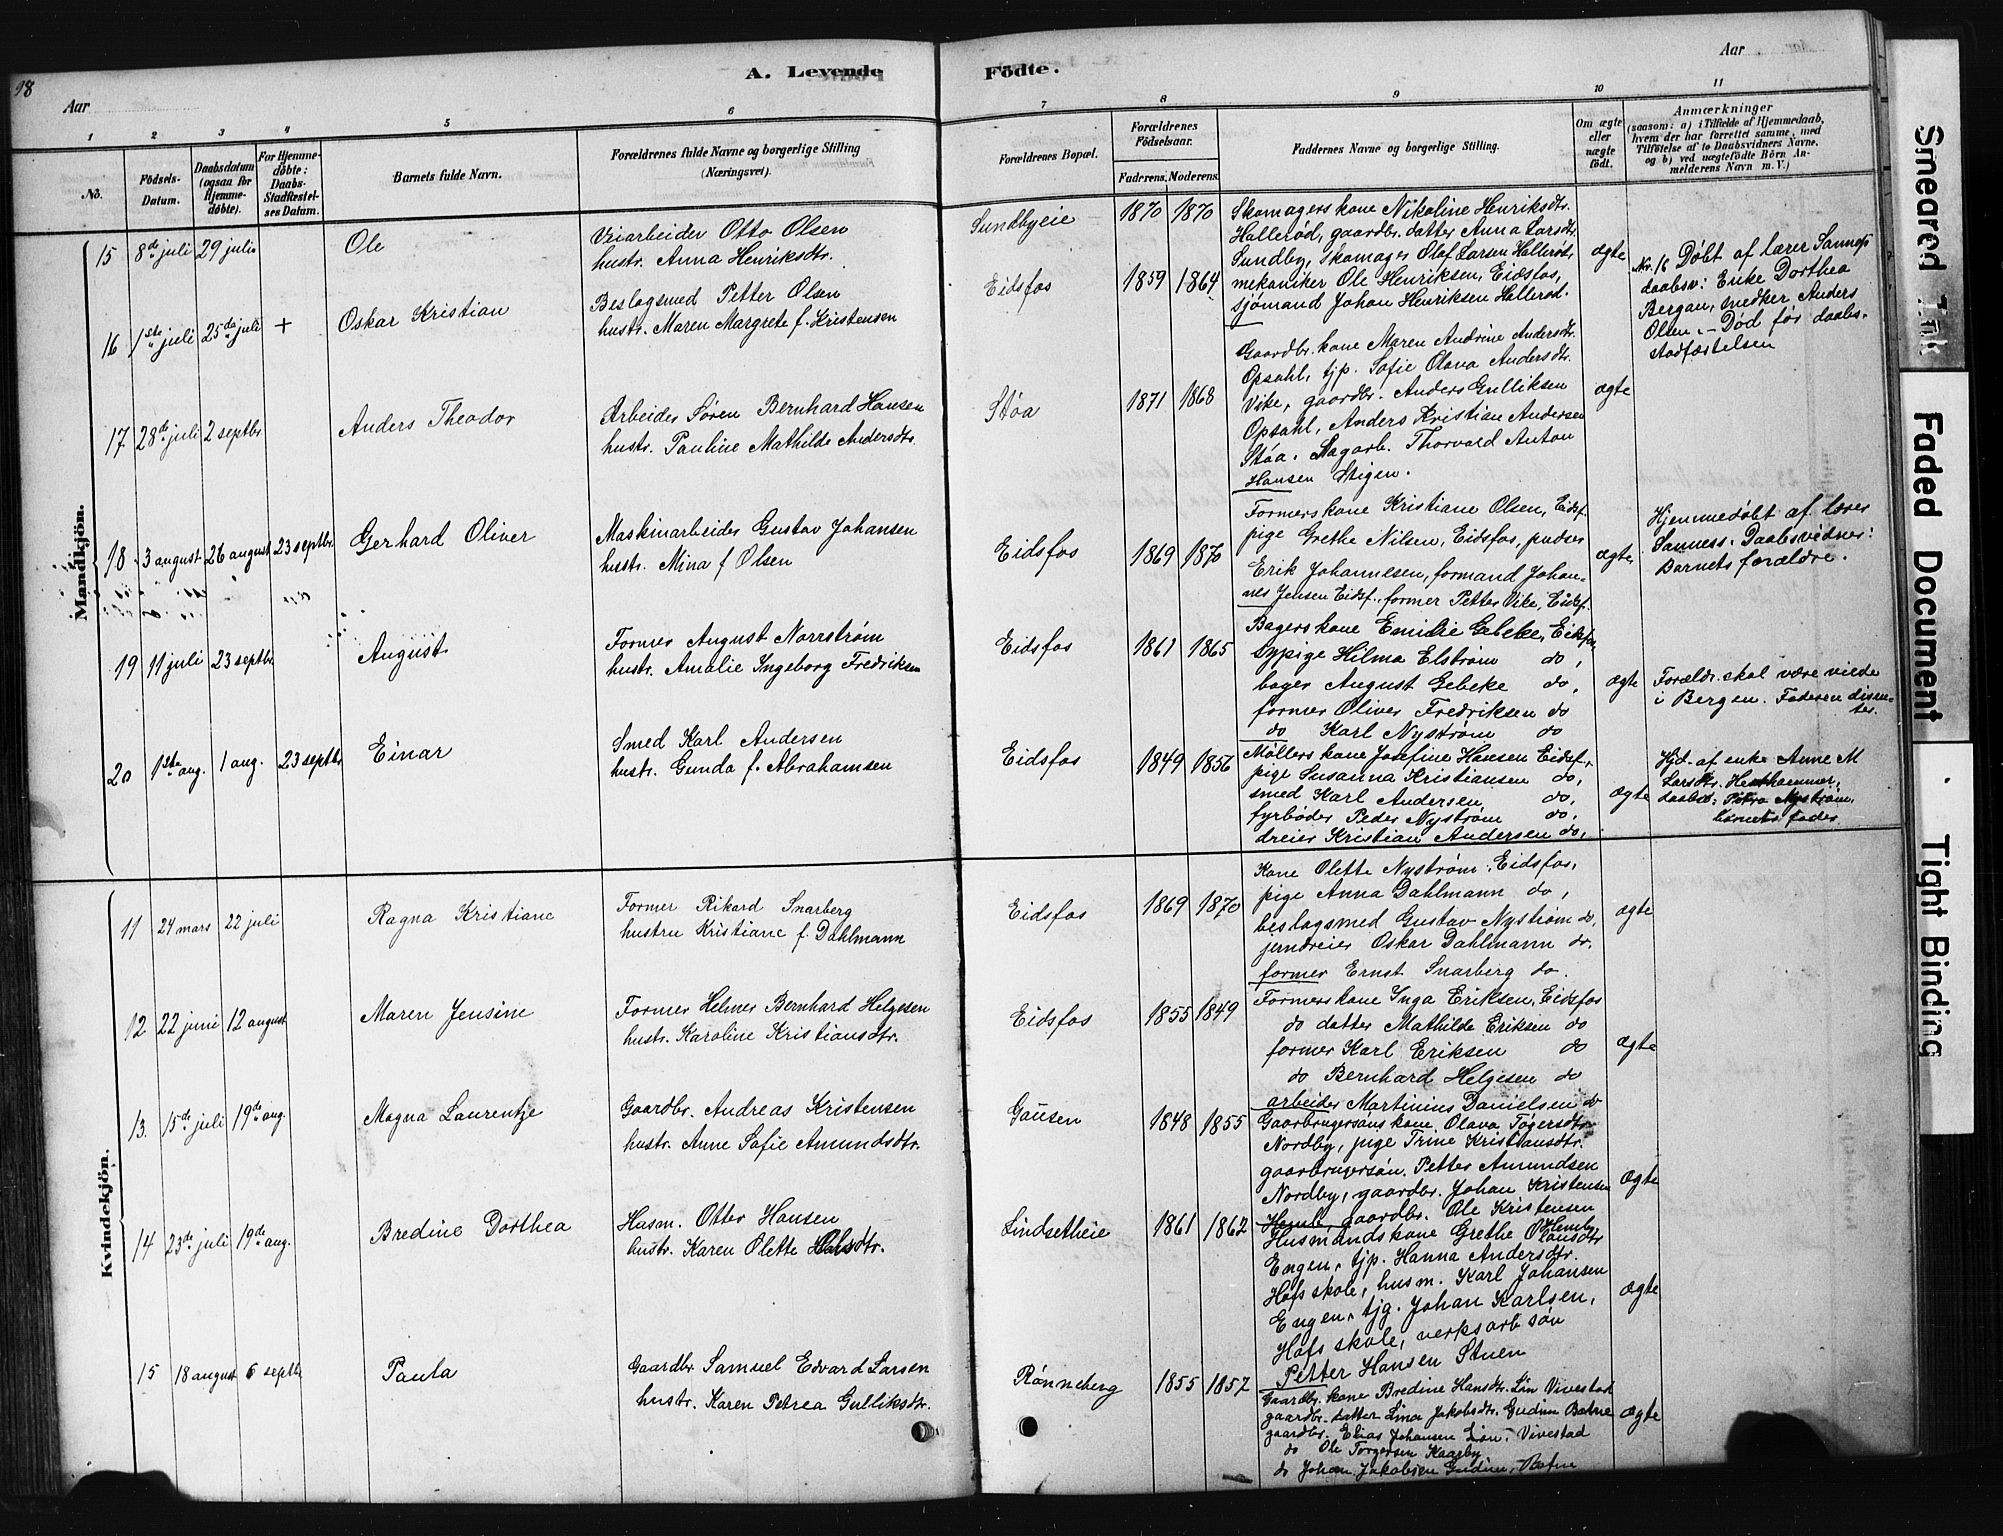 98
A. Levende
Födte.
Aar
Aar
1
2
3
4
5
6
7
8
9
10
11
No.
Födsels-
Datum.
Daabsdatum
(ogsaa for
Hjemme-
döbte).
For Hjemme-
döbte:
Daabs-
Stadfæstel-
ses Datum.
Barnets fulde Navn.
Forældrenes fulde Navne og borgerlige Stilling
(Næringsvei).
Forældrenes Bopæl.
Forældrenes
Födselsaar.
Faderens.
Moderens.
Faddernes Navne og borgerlige Stilling.
Om ægte
eller
uægte
födt.
Anmærkninger
(saasom: a) i Tilfælde af Hjemmedaab,
hvem der har forrettet samme, med
Tilföielse af to Daabsvidners Navne,
og b) ved uægtefödte Börn An-
melderens Navn m. V.)
Mandkjön.
15
8de juli
29 juli
Ole
Veiarbeider Otto Olsen
hustr. Anna Henriksdtr.
Sundbyeie
1870
1870
Skomagers kone Nikoline Henriksdtr.
Hallerød, gaardbr. datter Anna Larsdtr.
Sundby, Skomager Olaf Larsen Hallerød,
mekaniker Ole Henriksen, Eidsfos,
sjømand Johan Henriksen Hallerød.
ægte
16
1ste juli
25de juli
+
Oskar Kristian
Beslagsmed Petter Olsen
hustr. Maren Margrete f. Kristensen
Eidsfos
1859
1864
Nr. 16 Døbt af lærer Sannes
daabsv: Enke Dorthea
Bergan, snedker Anders
Olsen. – Død før daabs-
stadfæstelsen
17
28de juli
2 septbr
Anders Theodor
Arbeider Søren Bernhard Hansen
hustr. Pauline Mathilde Andersdtr.
Støa
1871
1868
Gaardbr. kone Maren Andrine Andersdtr.
Opsahl, tjp. Sofie Olava Andersdtr.
Vike, gaardbr. Anders Gulliksen
Opsahl, Anders Kristian Andersen
Støa. Sagarb. Thorvald Anton
Hansen Stigen.
ægte
18
3 august
26 august
23 septbr.
Gerhard Oliver
Maskinarbeider Gustav Johansen
hustr. Mina f Olsen
Eidsfos
1869
1870
Formers kone Kristiane Olsen, Eidsf.
pige Grethe Nilsen, Eidsfos, pudser
Erik Johannesen, formand Johan-
nes Jensen Eidsf., former Petter Vike, Eidsf.
ægte
Hjemmedøbt af lærer
Sanness. Daabsvidner:
Barnets forældre.
19
11 juli
23 septbr
August
Former August Norrstrøm
hustr. Amalie Ingeborg Fredriksen
Eidsfos
1861
1865
Bagers kone Emilie Gebeke, Eidsfos
Sypige Hilma Elstrøm do,
bager August Gebeke do,
former Oliver Fredriksen do
do Karl Nystrøm do
ægte
Forældr. skal være viede
i Bergen. Faderen dissen-
ter.
20
1ste aug.
1 aug.
23 septbr
Einar
Smed Karl Andersen
hustr. Gunda f. Abrahamsen
Eidsfos
1849
1856
Møllers kone Josefine Hansen Eidsf.
pige Susanna Kristiansen do,
smed Karl Andersen, do,
fyrbøder Peder Nystrøm do,
dreier Kristian Andersen do,
ægte
Hjd. af enke Anne M
Larsdtr.
daabsv: Petra Nystrøm,
barnets fader
Kvindekjön.
11
24 mars
22 juli
Ragna Kristiane
Former Rikard Snarberg
hustru Kristiane f. Dahlmann
Eidsfos
1869
1870
Kone Olette Nystrøm, Eidsfos,
pige Anna Dahlmann do,
beslagsmed Gustav Nystrøm do,
jerndreier Oskar Dahlmann do.
former Ernst Snarberg do.
ægte
12
22 juni
12 august
Maren Jensine
Former Helmer Bernhard Helgesen
hustr. Karoline Kristiansdtr.
Eidsfos
1855
1849
Formers kone Inga Eriksen, Eidsfos
do datter Mathilde Eriksen do
former Karl Eriksen do
do Bernhard Helgesen do
arbeider Martinius Danielsen do
ægte
13.
15de juli
19de aug.
Magna Laurentze
Gaardbr. Andreas Kristensen
hustr. Anne Sofie Amundsdtr.
Gausen
1848
1855
Gaarbrugersøns kone Olava Tøgersdtr
Nordby, pige Trine Kristiansdtr.
gaarbrugersøn. Petter Amundsen
Nordby, gaardbr. Johan Kristensen
Hemb, gaardbr. Ole Kristensen
Hemby
ægte
14
23de juli
19de aug.
Bredine Dorthea
Husm. Otter Hansen
hustr. Karen Olette
Lindsetheie
1861
1862
Husmands kone Grethe Olausdtr
Engen, tjp. Hanna Andersdtr.
Hofs skole, husm. Karl Johansen
Engen, tjg. Johan Karlsen,
Hofs skole, verksarb søn
Petter Hansen Stuen
ægte
15
18 august
6 septbr
Paula
Gaardbr. Samuel Edvard Larsen
hustr. Karen Petrea Gulliksdtr.
Rønneberg
1855
1857
Gaardbr. kone Bredine Hansdtr. Løn Vivestad
gaardbr. datter Lina Jakobsdtr. Gudim Botne
gaardbr. Elias Johansen Løn, Vivestad
do Ole Torgersen Kaarby
do Johan Jakobsen Gudim, Botne
ægte
Smeared Ink
Faded Document
Tight Binding